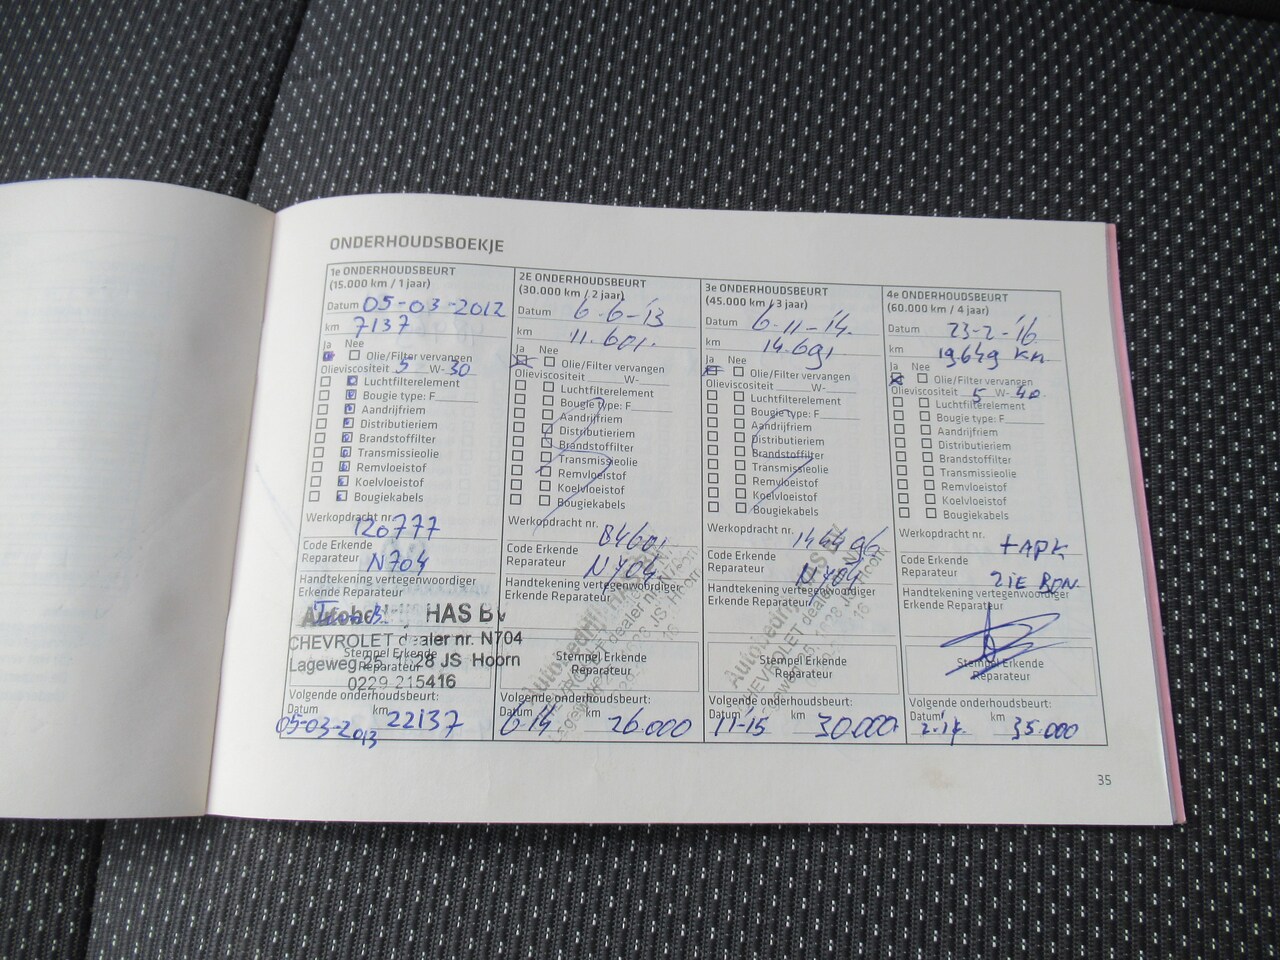 ONDERHOUDSBOEKJE
1e ONDERHOUDSBEURT
(15.000 km / 1 jaar)
Datum 05-03-2012
km 7137
Ja Nee
Olie/Filter vervangen
Olieviscositeit 5 W- 30
Luchtfilterelement
Bougie type: F
Aandrijfriem
Distributieriem
Brandstoffilter
Transmissieolie
Remvloeistof
Koelvloeistof
Bougiekabels
Werkopdracht nr.
120777
Code Erkende
Reparateur N704
Handtekening vertegenwoordiger
Erkende Reparateur
HAS BV
CHEVROLET dealer nr. N704
Stempel Erkende
Lageweg 25 28 JS Hoorn
Reparateur
0229-215416
Volgende onderhoudsbeurt:
Datum km
05-03-2013 22137
2E ONDERHOUDSBEURT
(30.000 km / 2 jaar)
Datum 6-6-13
km 11.601.
Ja Nee
Olie/Filter vervangen
Olieviscositeit W-
Luchtfilterelement
Bougie type: F
Aandrijfriem
Distributieriem
Brandstoffilter
Transmissieolie
Remvloeistof
Koelvloeistof
Bougiekabels
Werkopdracht nr.
84601
Code Erkende
Reparateur N704
Handtekening vertegenwoordiger
Erkende Reparateur
Stempel Erkende
Reparateur
Volgende onderhoudsbeurt:
Datum km
6-14 26.000
3e ONDERHOUDSBEURT
(45.000 km / 3 jaar)
Datum 6-11-'14.
km 14.691
Ja Nee
Olie/Filter vervangen
Olieviscositeit W-
Luchtfilterelement
Bougie type: F
Aandrijfriem
Distributieriem
Brandstoffilter
Transmissieolie
Remvloeistof
Koelvloeistof
Bougiekabels
Werkopdracht nr.
Code Erkende
Reparateur N704
Handtekening vertegenwoordiger
Erkende Reparateur
Stempel Erkende
Reparateur
Volgende onderhoudsbeurt:
Datum km
11-15 30.000
4e ONDERHOUDSBEURT
(60.000 km / 4 jaar)
Datum 23-2-'16
km 19649 km
Ja Nee
Olie/Filter vervangen
Olieviscositeit 5 W- 40
Luchtfilterelement
Bougie type: F
Aandrijfriem
Distributieriem
Brandstoffilter
Transmissieolie
Remvloeistof
Koelvloeistof
Bougiekabels
Werkopdracht nr.
+APK
Code Erkende
Reparateur ZIE BON.
Handtekening vertegenwoordiger
Erkende Reparateur
Stempel Erkende
Reparateur
Volgende onderhoudsbeurt:
Datum km
35.000
35